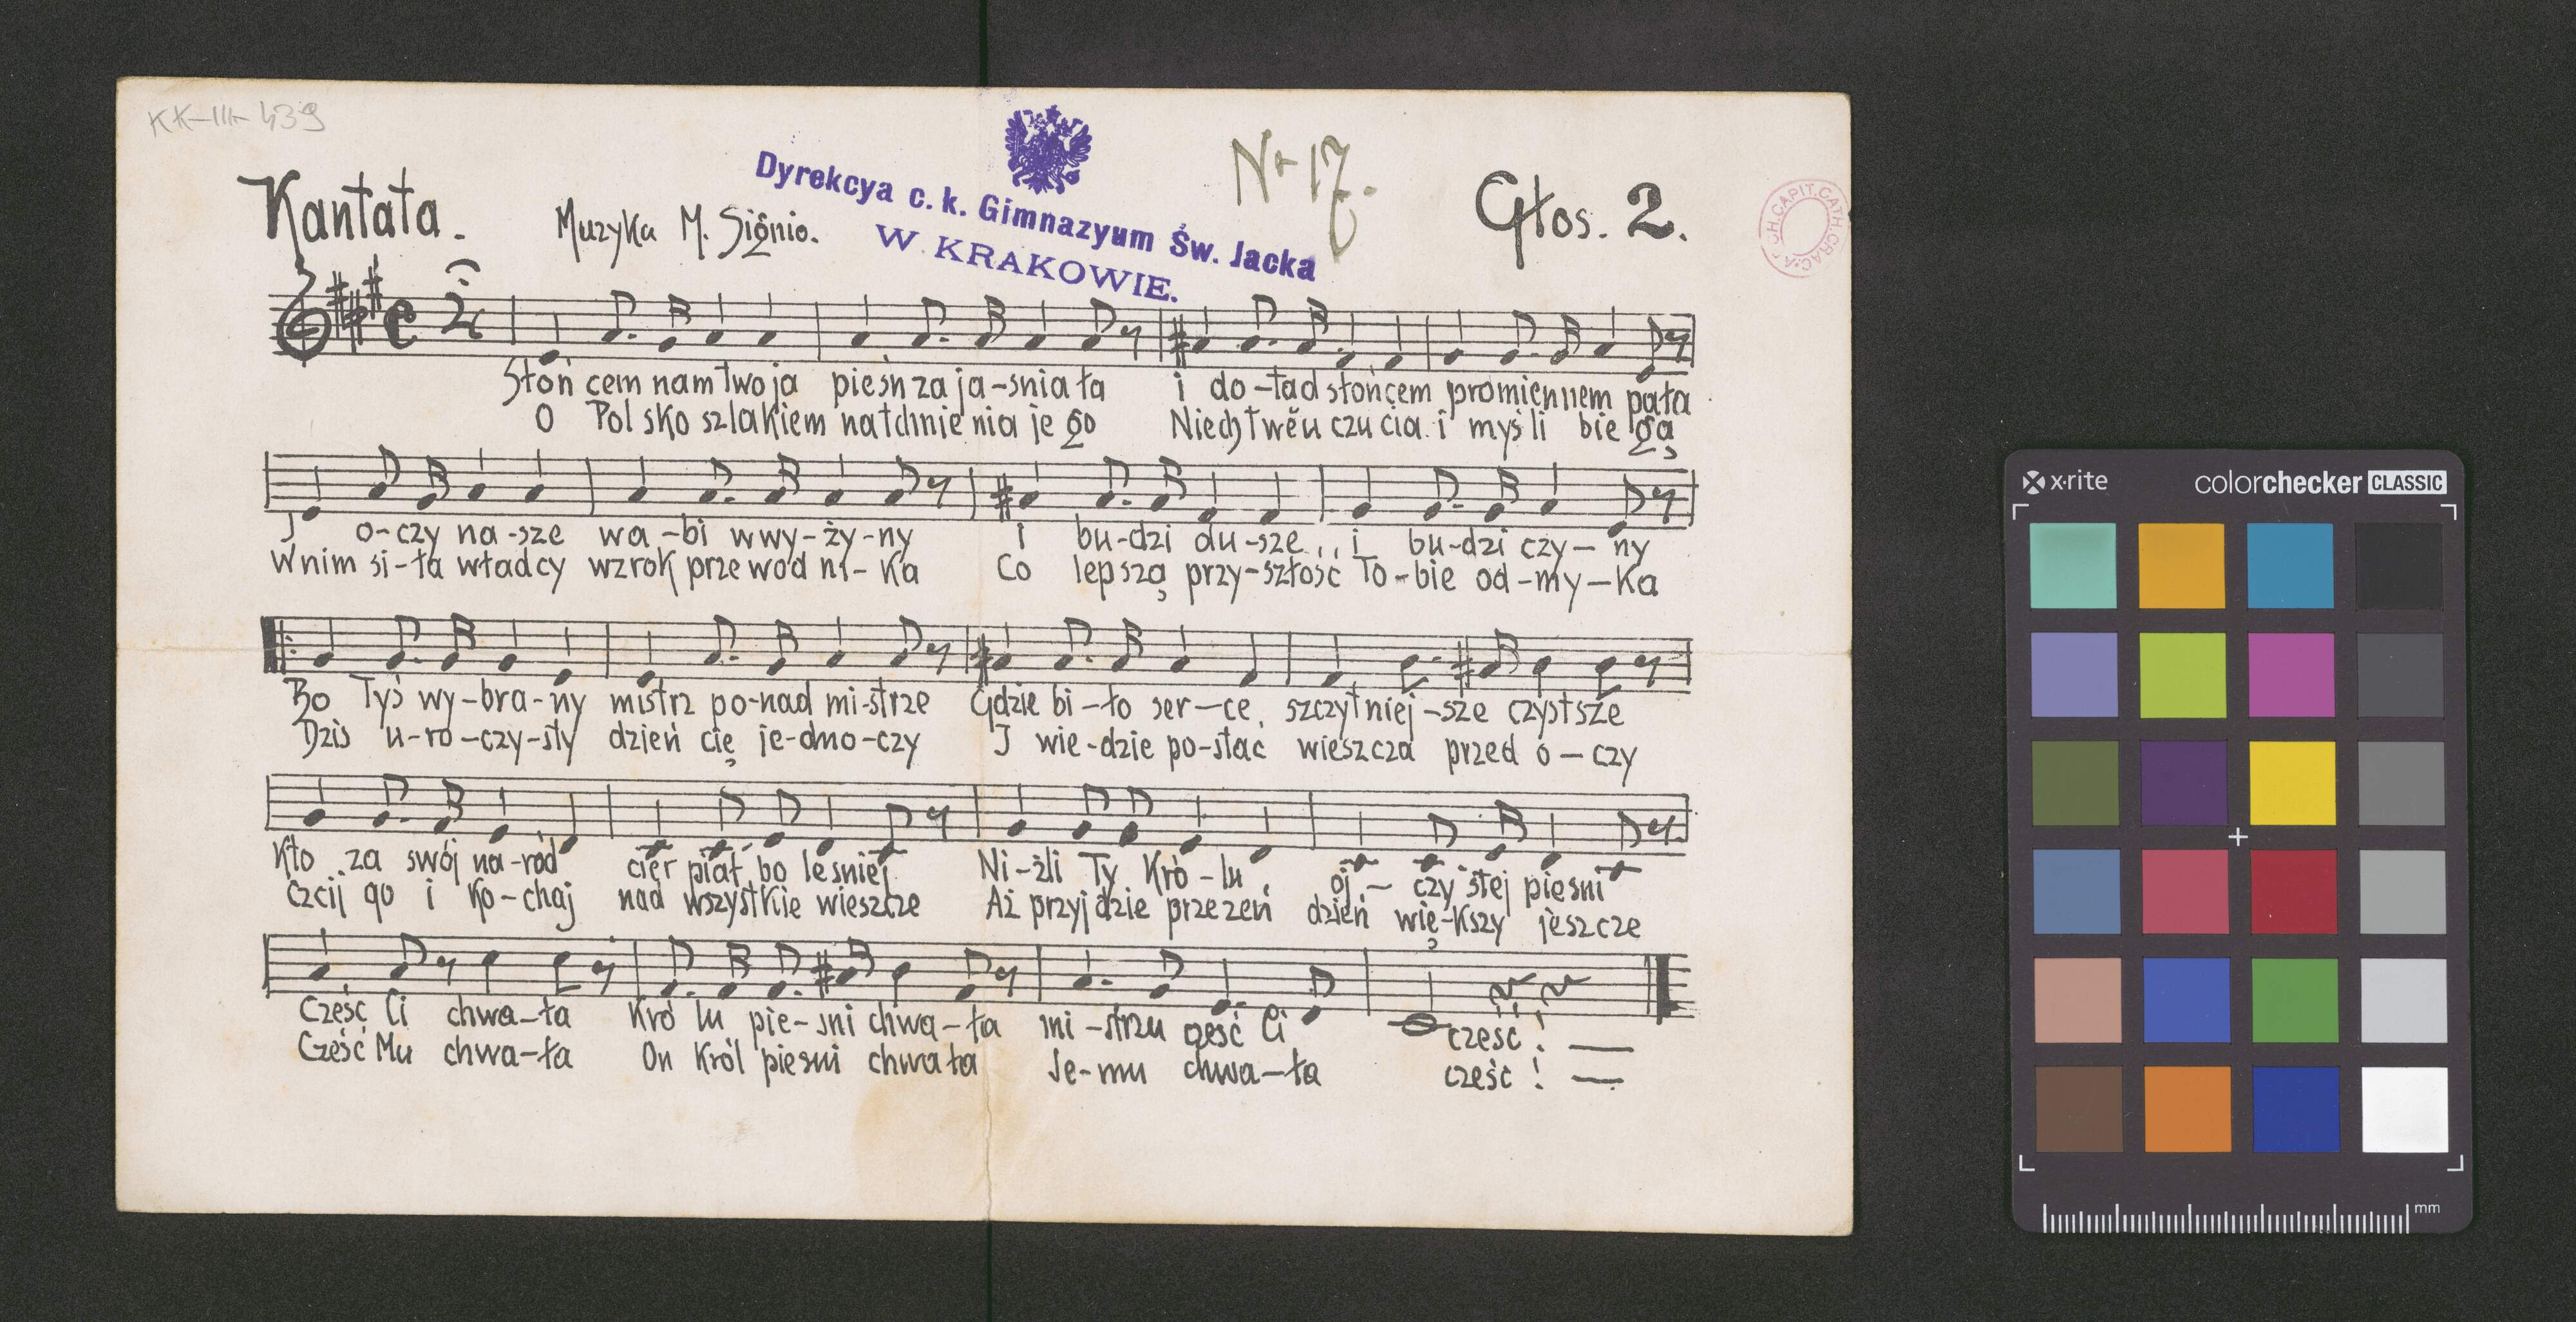 KK-III-439
Dyrekcya c. k. Gimnazyum Św. Jacka
W KRAKOWIE.
Nr 17.
Kantata.
Muzyka M. Signio.
Głos. 2.
CH.CAPIT.CATH.CRAC.A
Słoń cem nam Twoja pieśń za ja-snia ła i do-tad słońcem promiennem pała
O Pol sko szlakiem natchnie nia je go Niech twĕu czu cia i myśli bie gą
J o-czy na-sze wa-bi w wy-ży-ny i bu-dzi du-sze,, i bu-dzi czy-ny
W nim si-ła władcy wzrok prze wod ni-Ka Co lepszą przy-szłość To-bie od-my-Ka
Bo Tyś wy-bra-ny mistrz po-nad mi-strze Gdzie bi-ło ser-ce, szczytniej-sze czystsze
Dziś u-ro-czy-sty dzień cię je-dno-czy J wie-dzie po-stać wieszcza przed o-czy
Kto za swój na-ród cier piał bo leśniej Ni-żli Ty Kró-lu oj- czy stej pieśni
Czcij go i Ko-chaj nad wszystKie wieszcze Aż przyjdzie przezeń dzień wię-Kszy jeszcze
Cześć Ci chwa-ła Kró lu pie-śni chwa-ła mi-strzu cześć Ci cześć! —
Cześć Mu chwa-ła On Król pieśni chwała Je-mu chwa-ła cześć! —
x·rite
colorchecker CLASSIC
mm